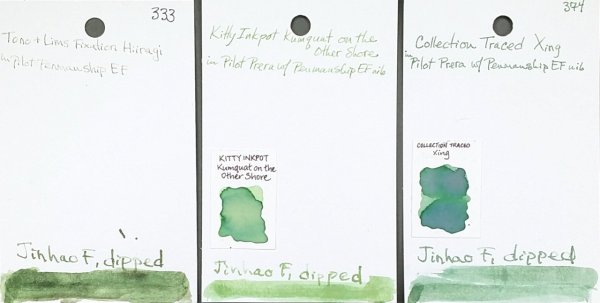 333
Tono + Lims Fixation Hiiragi
in Pilot Penmanship EF
Jinhao F, dipped
Kitty Inkpot Kumquat on the
Other Shore
in Pilot Prera w/ Penmanship EF nib
KITTY INKPOT
Kumquat on the
Other Shore
Jinhao F, dipped
344
Collection Traced Xing
in Pilot Prera w/ Penmanship EF nib
COLLECTION TRACED
Xing
Jinhao F, dipped